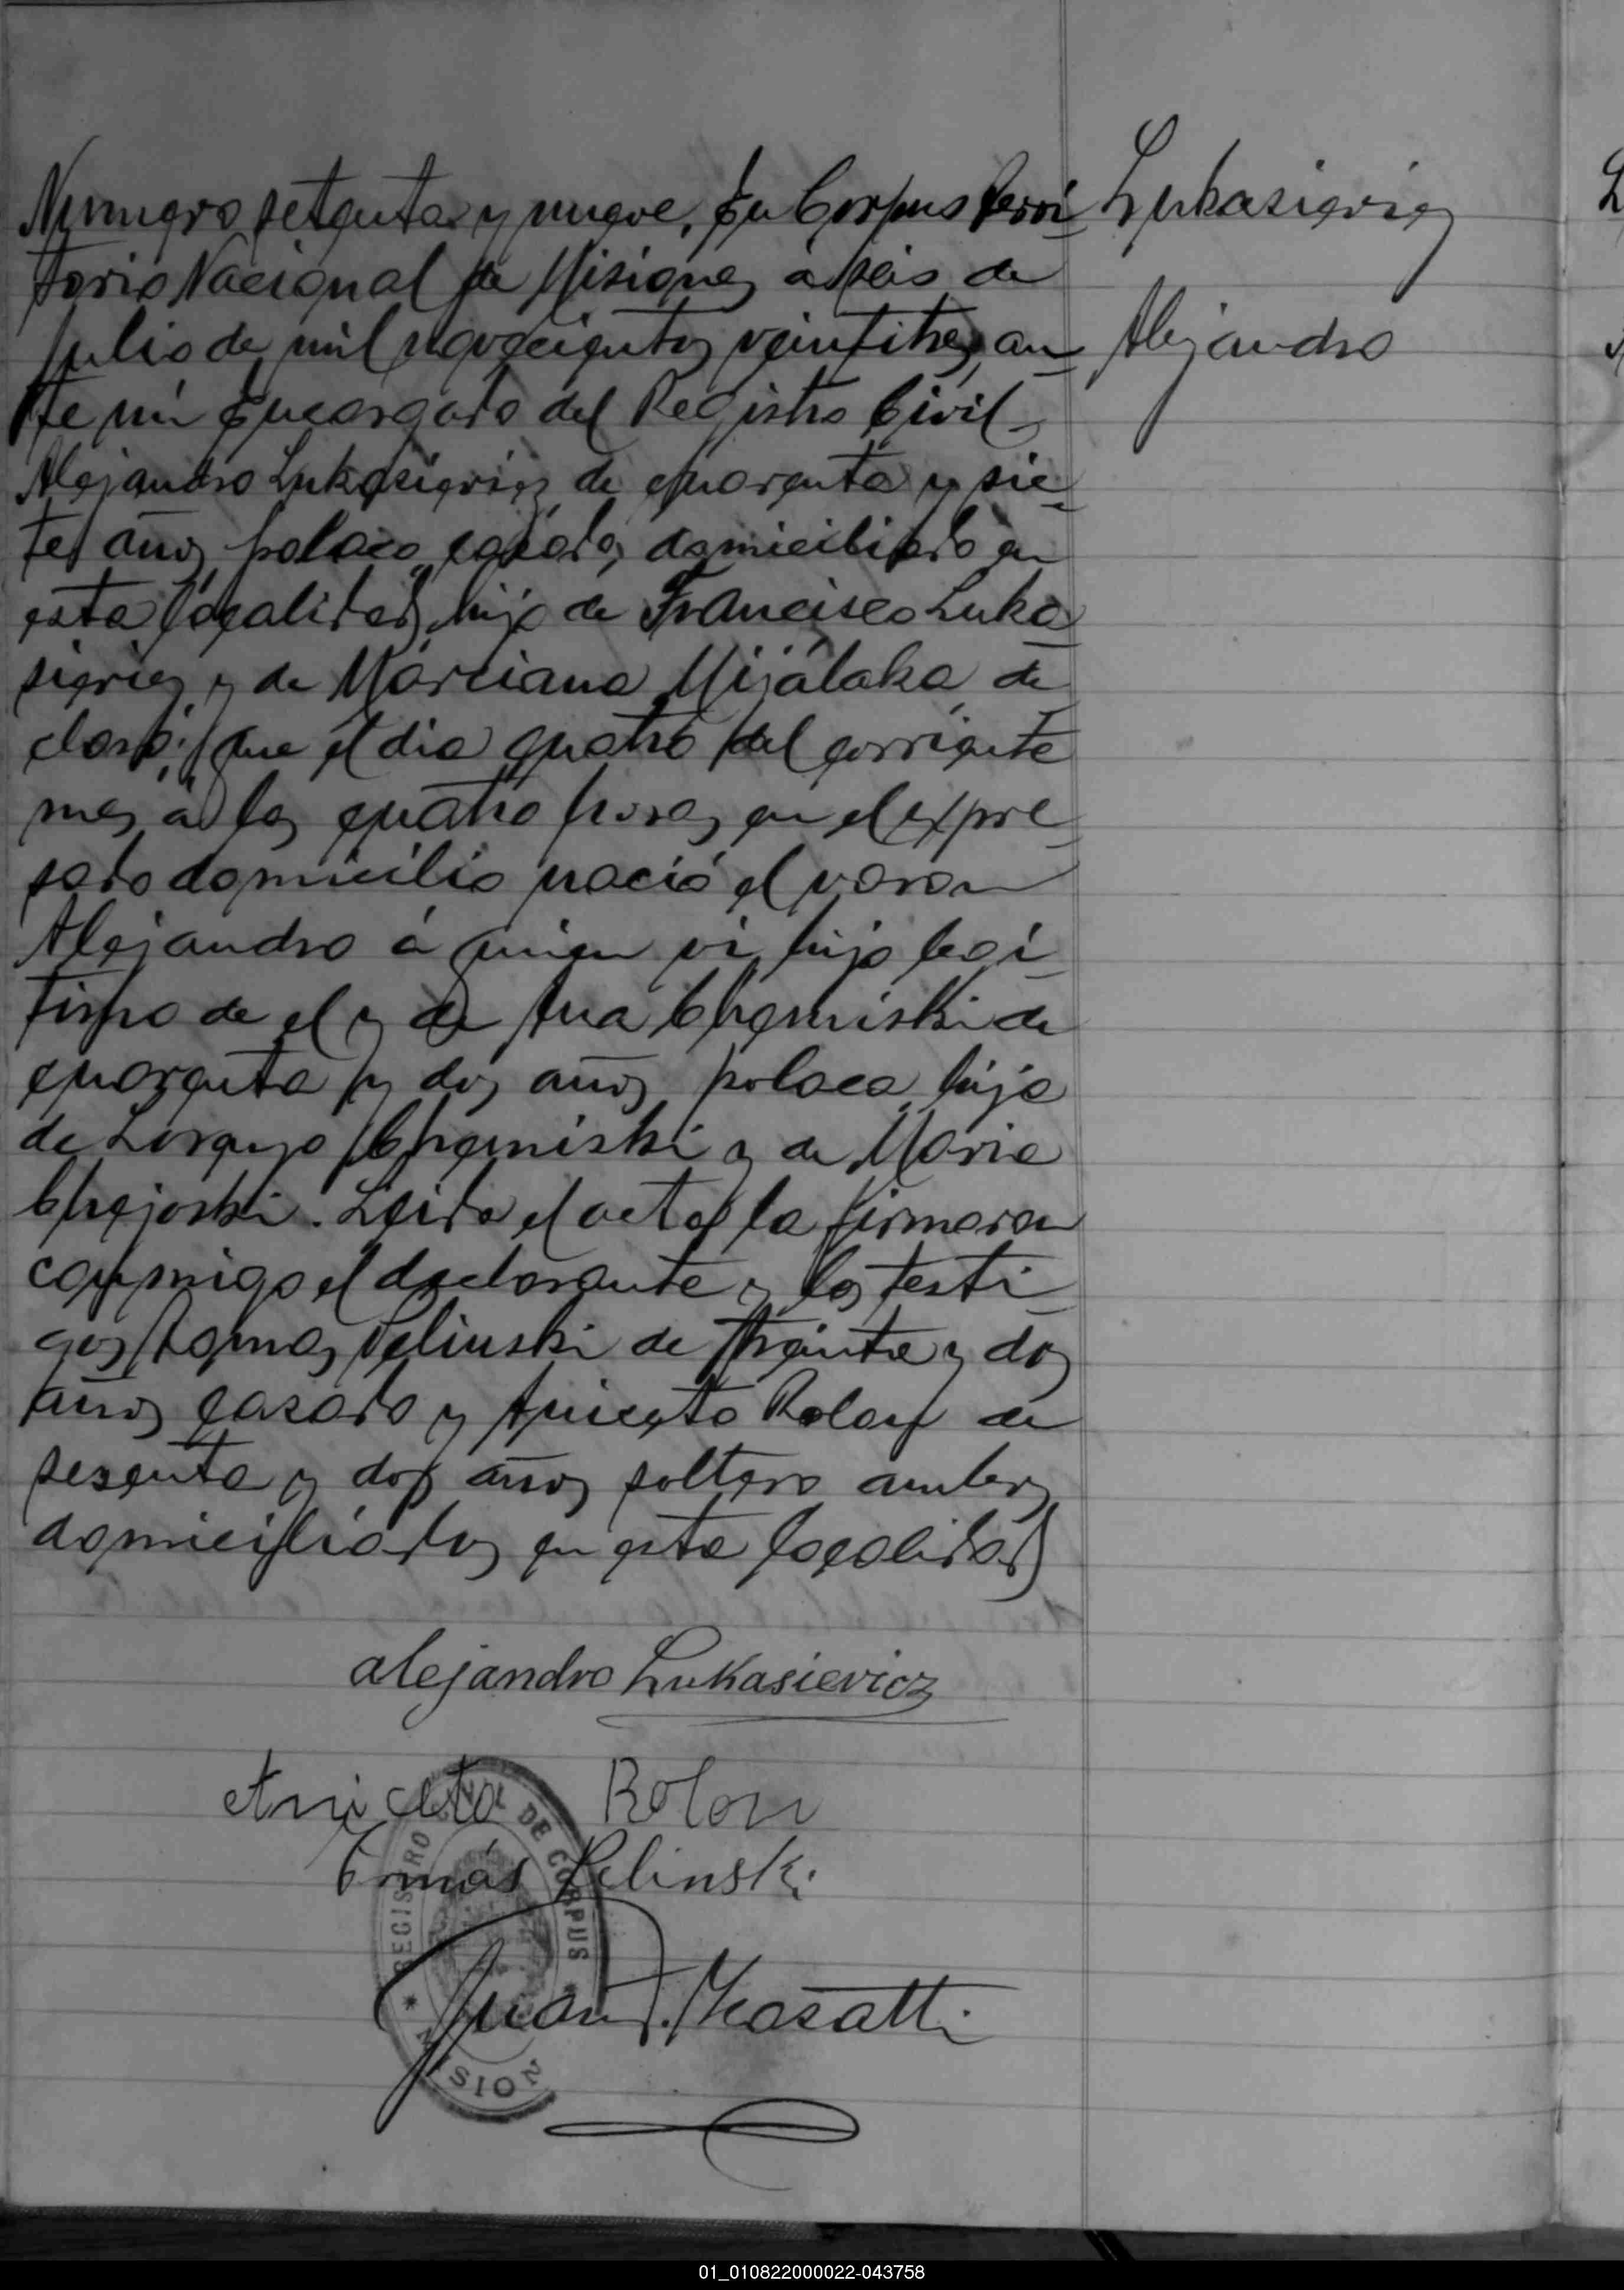 Numero setenta y nueve. En Corpus Terri-
torio Nacional de Misiones a seis de
Julio de mil novecientos veintitres, an-
te mi Encargado del Registro Civil
Alejandro Lukasieviez de cuarenta y sie-
te años, polaco, casado, domiciliado en
esta localidad, hijo de Francisco Luka-
sieviez y de Marciana Mijálaka, de-
claró: que el dia cuatro del corriente
mes a las cuatro horas en el expre-
sado domicilio nació el varon
Alejandro á quien vi, hijo legi-
timo de el y de Ana Chemiski de
cuarenta y dos años polaca, hija
de Lorenzo Chemiski y de Maria
Chejoski. Leida el acta la firmaron
conmigo el declarante y los testi-
gos Tomas Pelinski de treinta y dos
años casado y Aniceto Rolon de
sesenta y dos años soltero ambos
domiciliados en esta localidad
Lukasieviez
Alejandro
alejandro Lukasievicz
Aniceto Rolon
Tomás Pelinski
Juan
REGISTRO CIVIL DE CORPUS
MISIONES
01_010822000022-043758